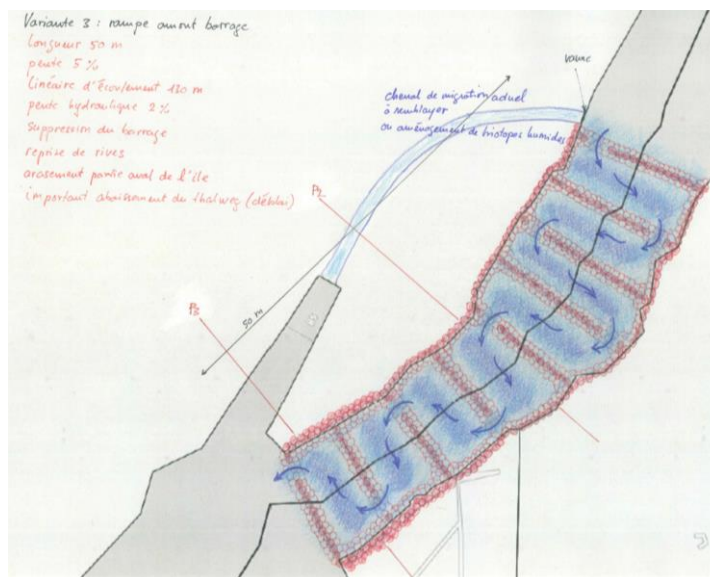 Variante 3 : rampe amont barrage
Longueur 50 m
pente 5 %
Linéaire d'Écoulement 130 m
pente hydraulique 2 %
Suppression du barrage
reprise de rives
arasement partie aval de l'île
important abaissement du thalweg (déblai)
vanne
chenal de migration actuel
à remblayer
ou aménagement de biotopes humides
P2
P3
50 m